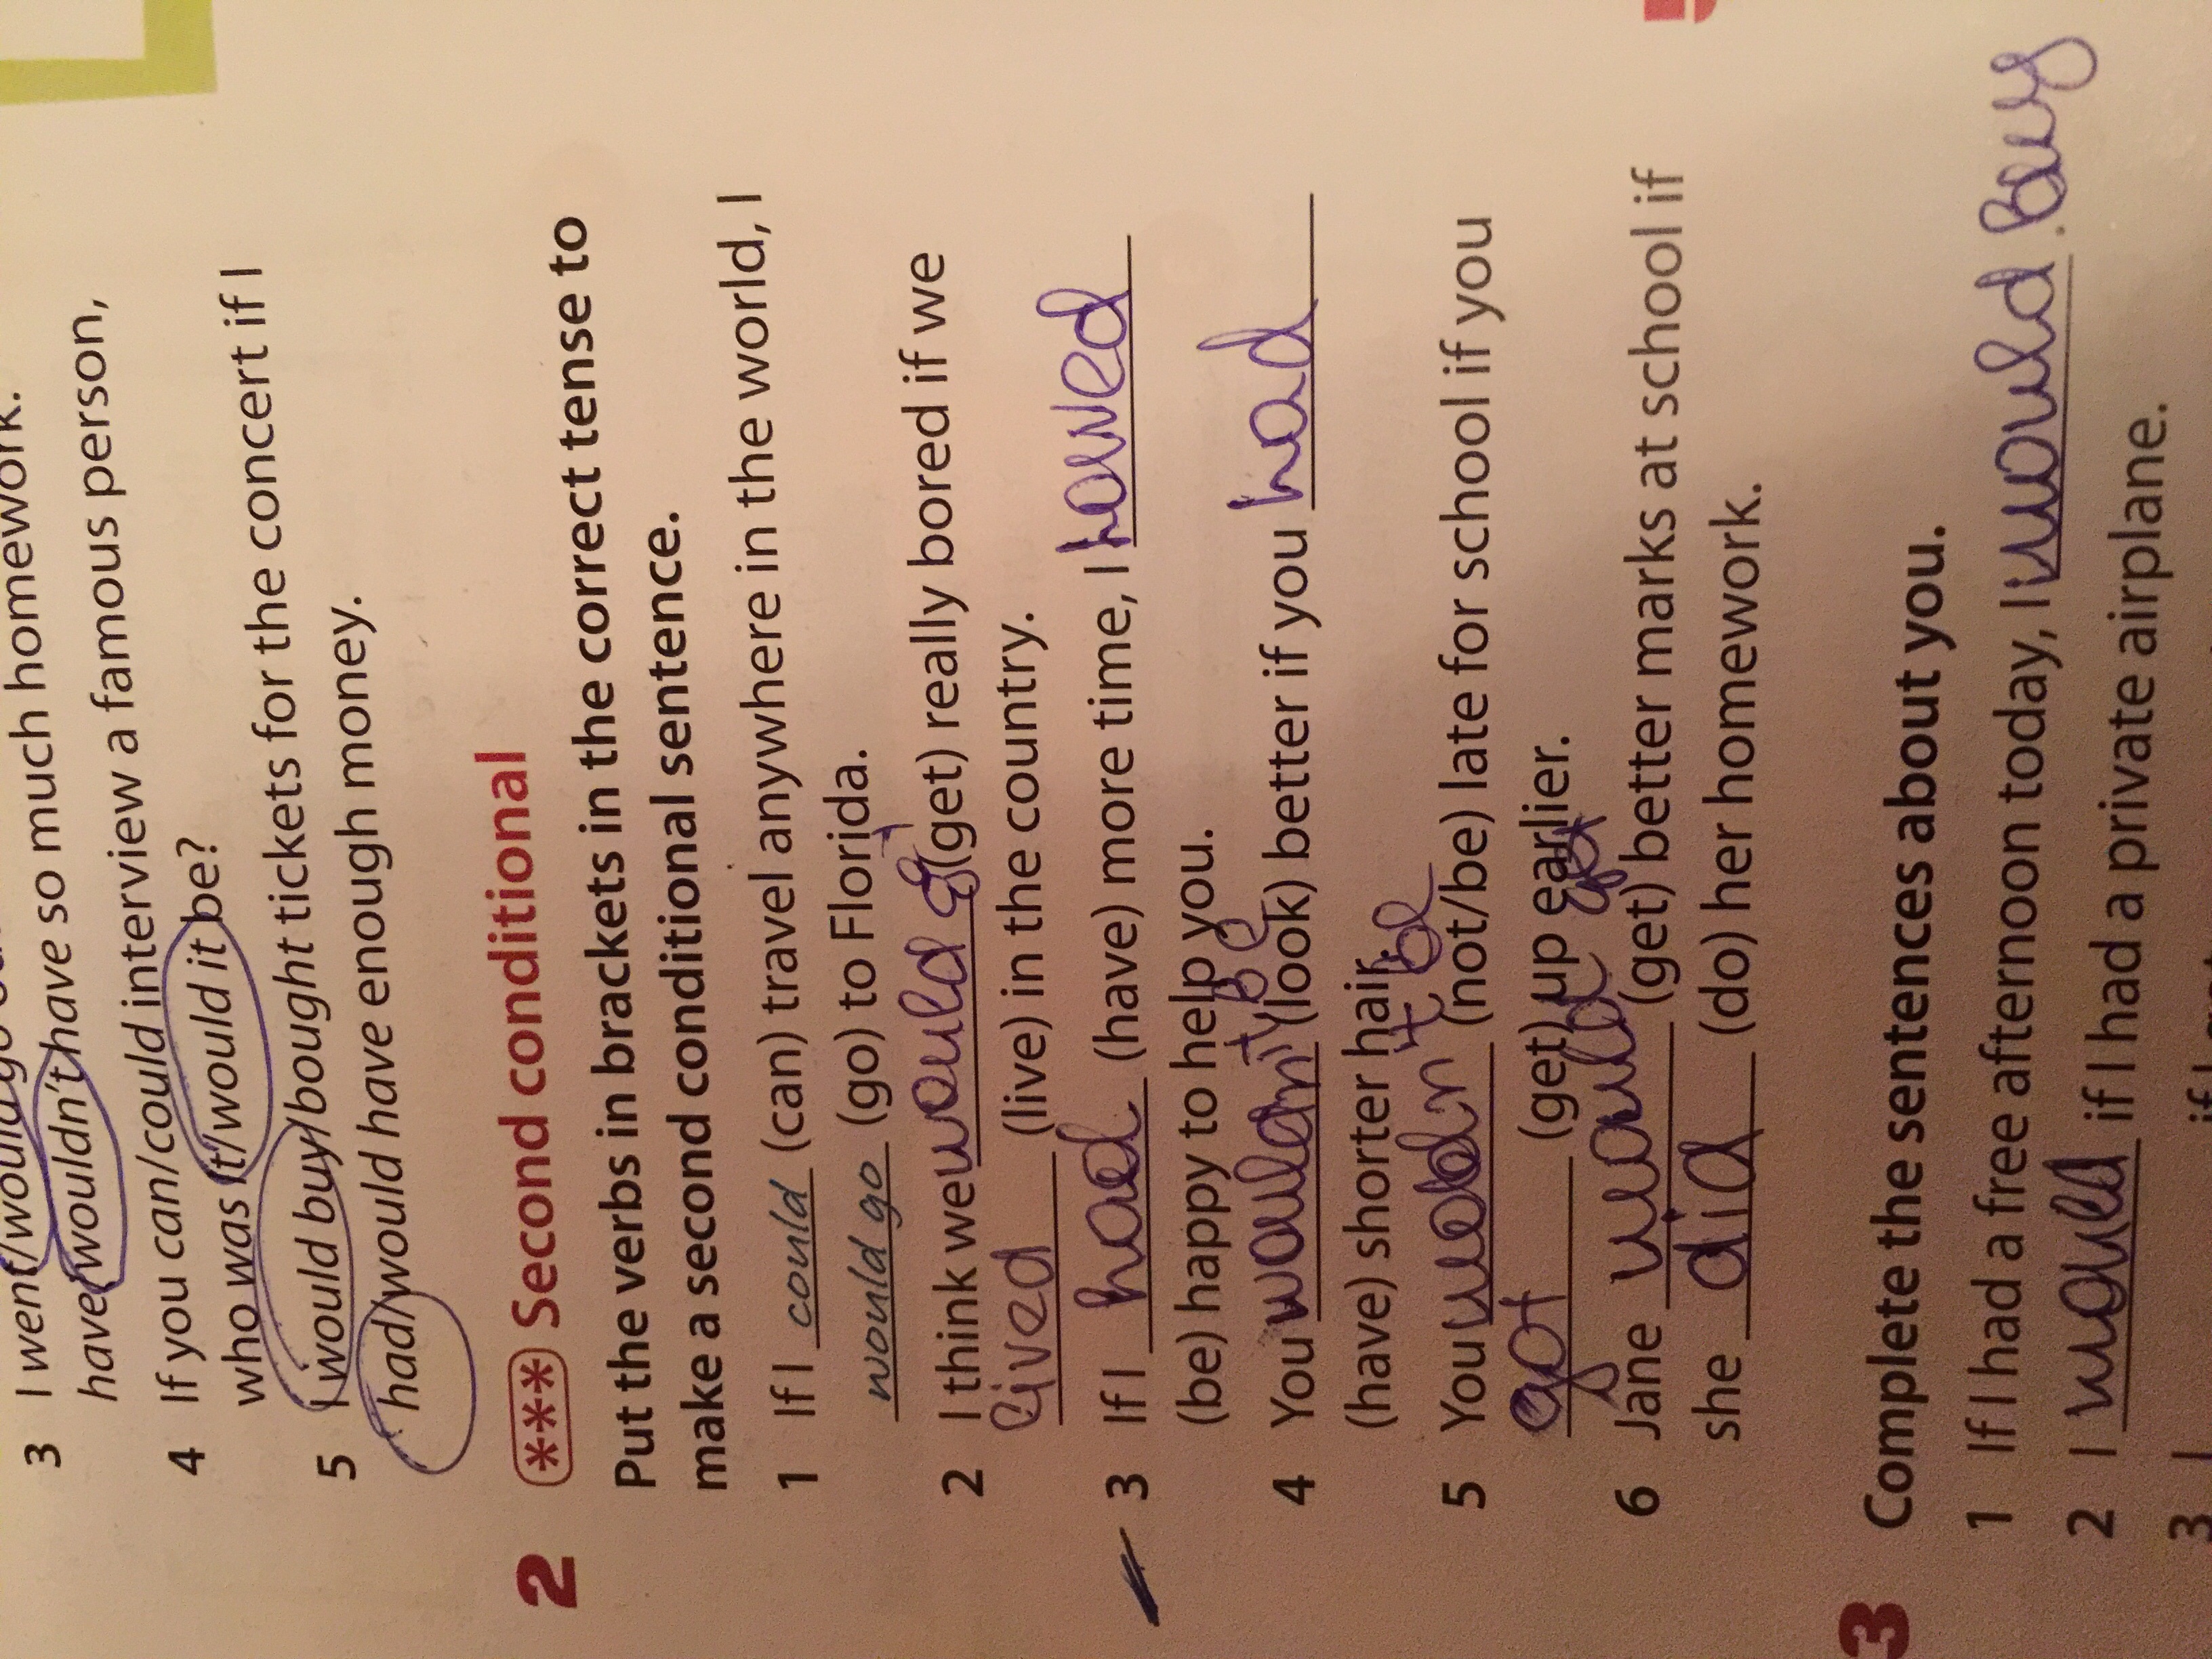 3 I went/would go
have/wouldn't have so much homework.
4 If you can/could interview a famous person,
who was it/would it be?
5 I would buy/bought tickets for the concert if I
had/would have enough money.
2 *** Second conditional
Put the verbs in brackets in the correct tense to
make a second conditional sentence.
1 If I could (can) travel anywhere in the world, I
would go (go) to Florida.
2 I think we would (get) really bored if we
lived (live) in the country.
3 If I had (have) more time, I
(be) happy to help you.
4 You be (look) better if you had
(have) shorter hair.
5 You be (not/be) late for school if you
got (get) up earlier.
6 Jane would get (get) better marks at school if
she did (do) her homework.
3 Complete the sentences about you.
1 If I had a free afternoon today, I would
2 I would if I had a private airplane.
3 I